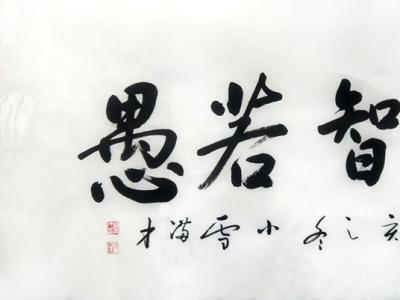 智若愚
亥之冬小雪满才